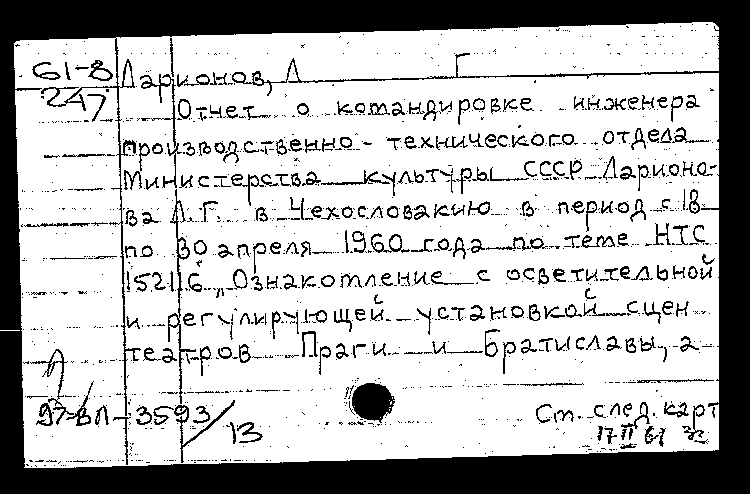 61-8 Ларионов, Л Г
247 Отчет о командировке инженера
производственно-технического отдела
Министерства культуры СССР Ларионо-
ва Л.Г. в Чехословакию в период с 18
по 30 апреля 1960 года по теме НТС
152116 „Ознакомление с осветительной
и регулирующей установкой сцен
театров Праги и Братиславы, а
97-ВЛ-3593/13 См. след. карт
17 II 61